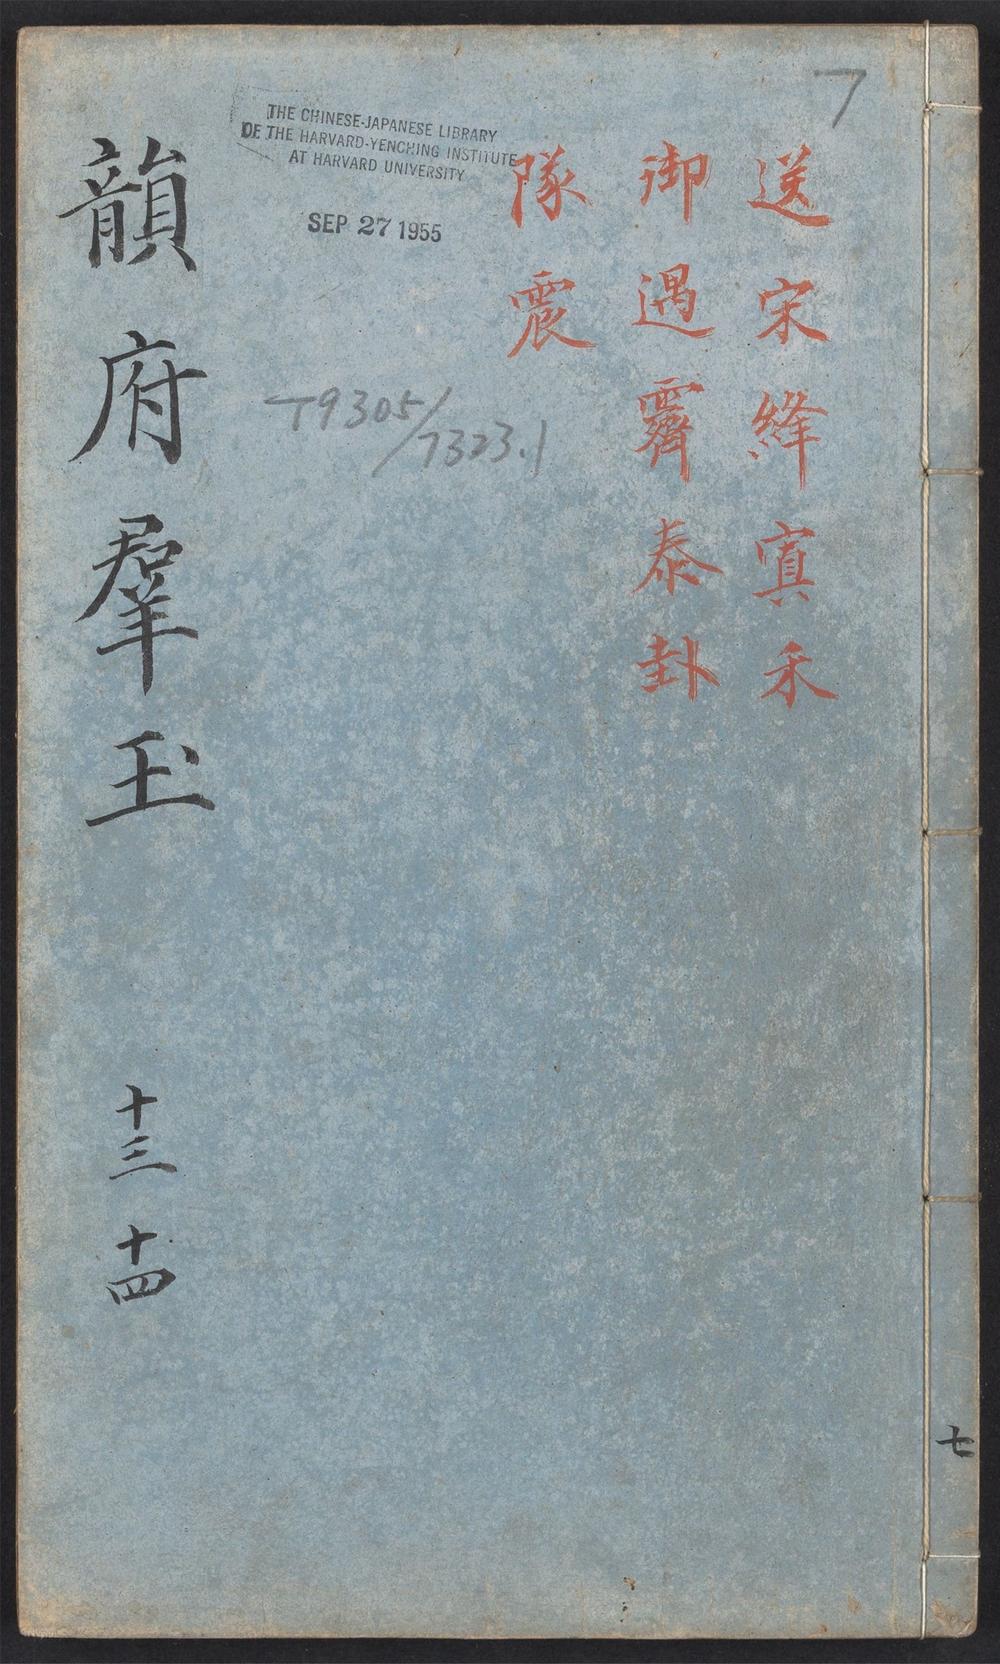 7
送宋絳寘未
御遇霽泰卦
隊震
THE CHINESE-JAPANESE LIBRARY
OF THE HARVARD-YENCHING INSTITUTE
AT HARVARD UNIVERSITY
SEP 27 1955
T9305/
7323.1
韻府羣玉
十三 十四
七